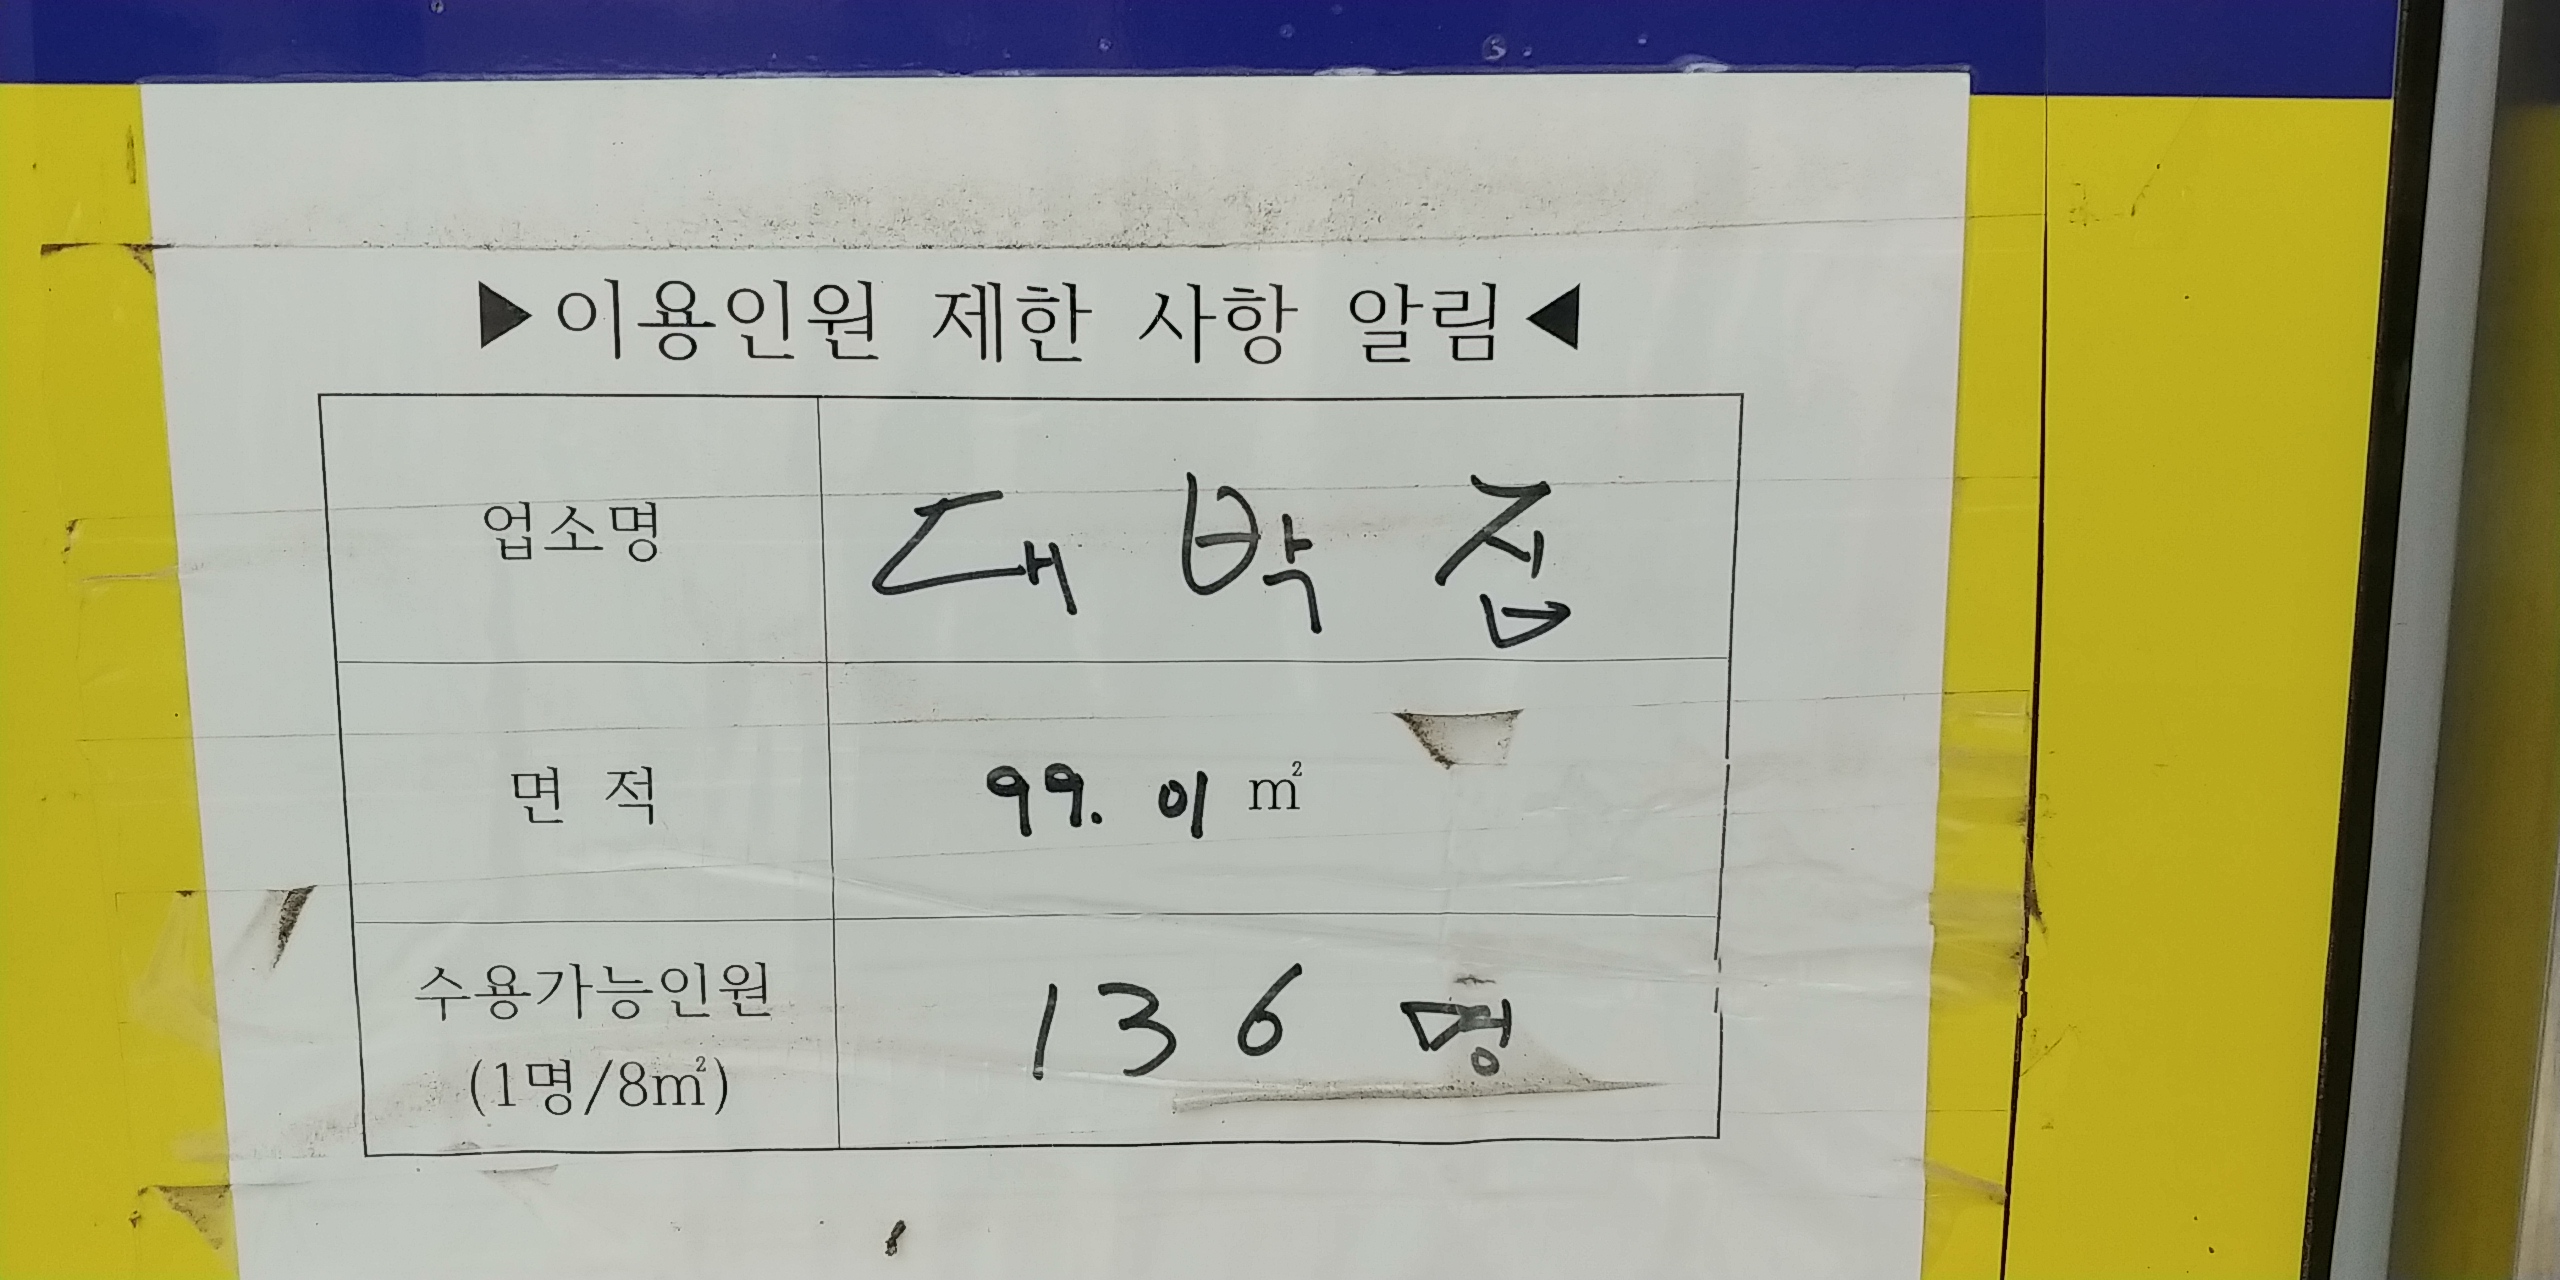 ▶이용인원 제한 사항 알림◀
업소명 대박집
면 적 99.01 ㎡
수용가능인원 136 명
(1명/8㎡)